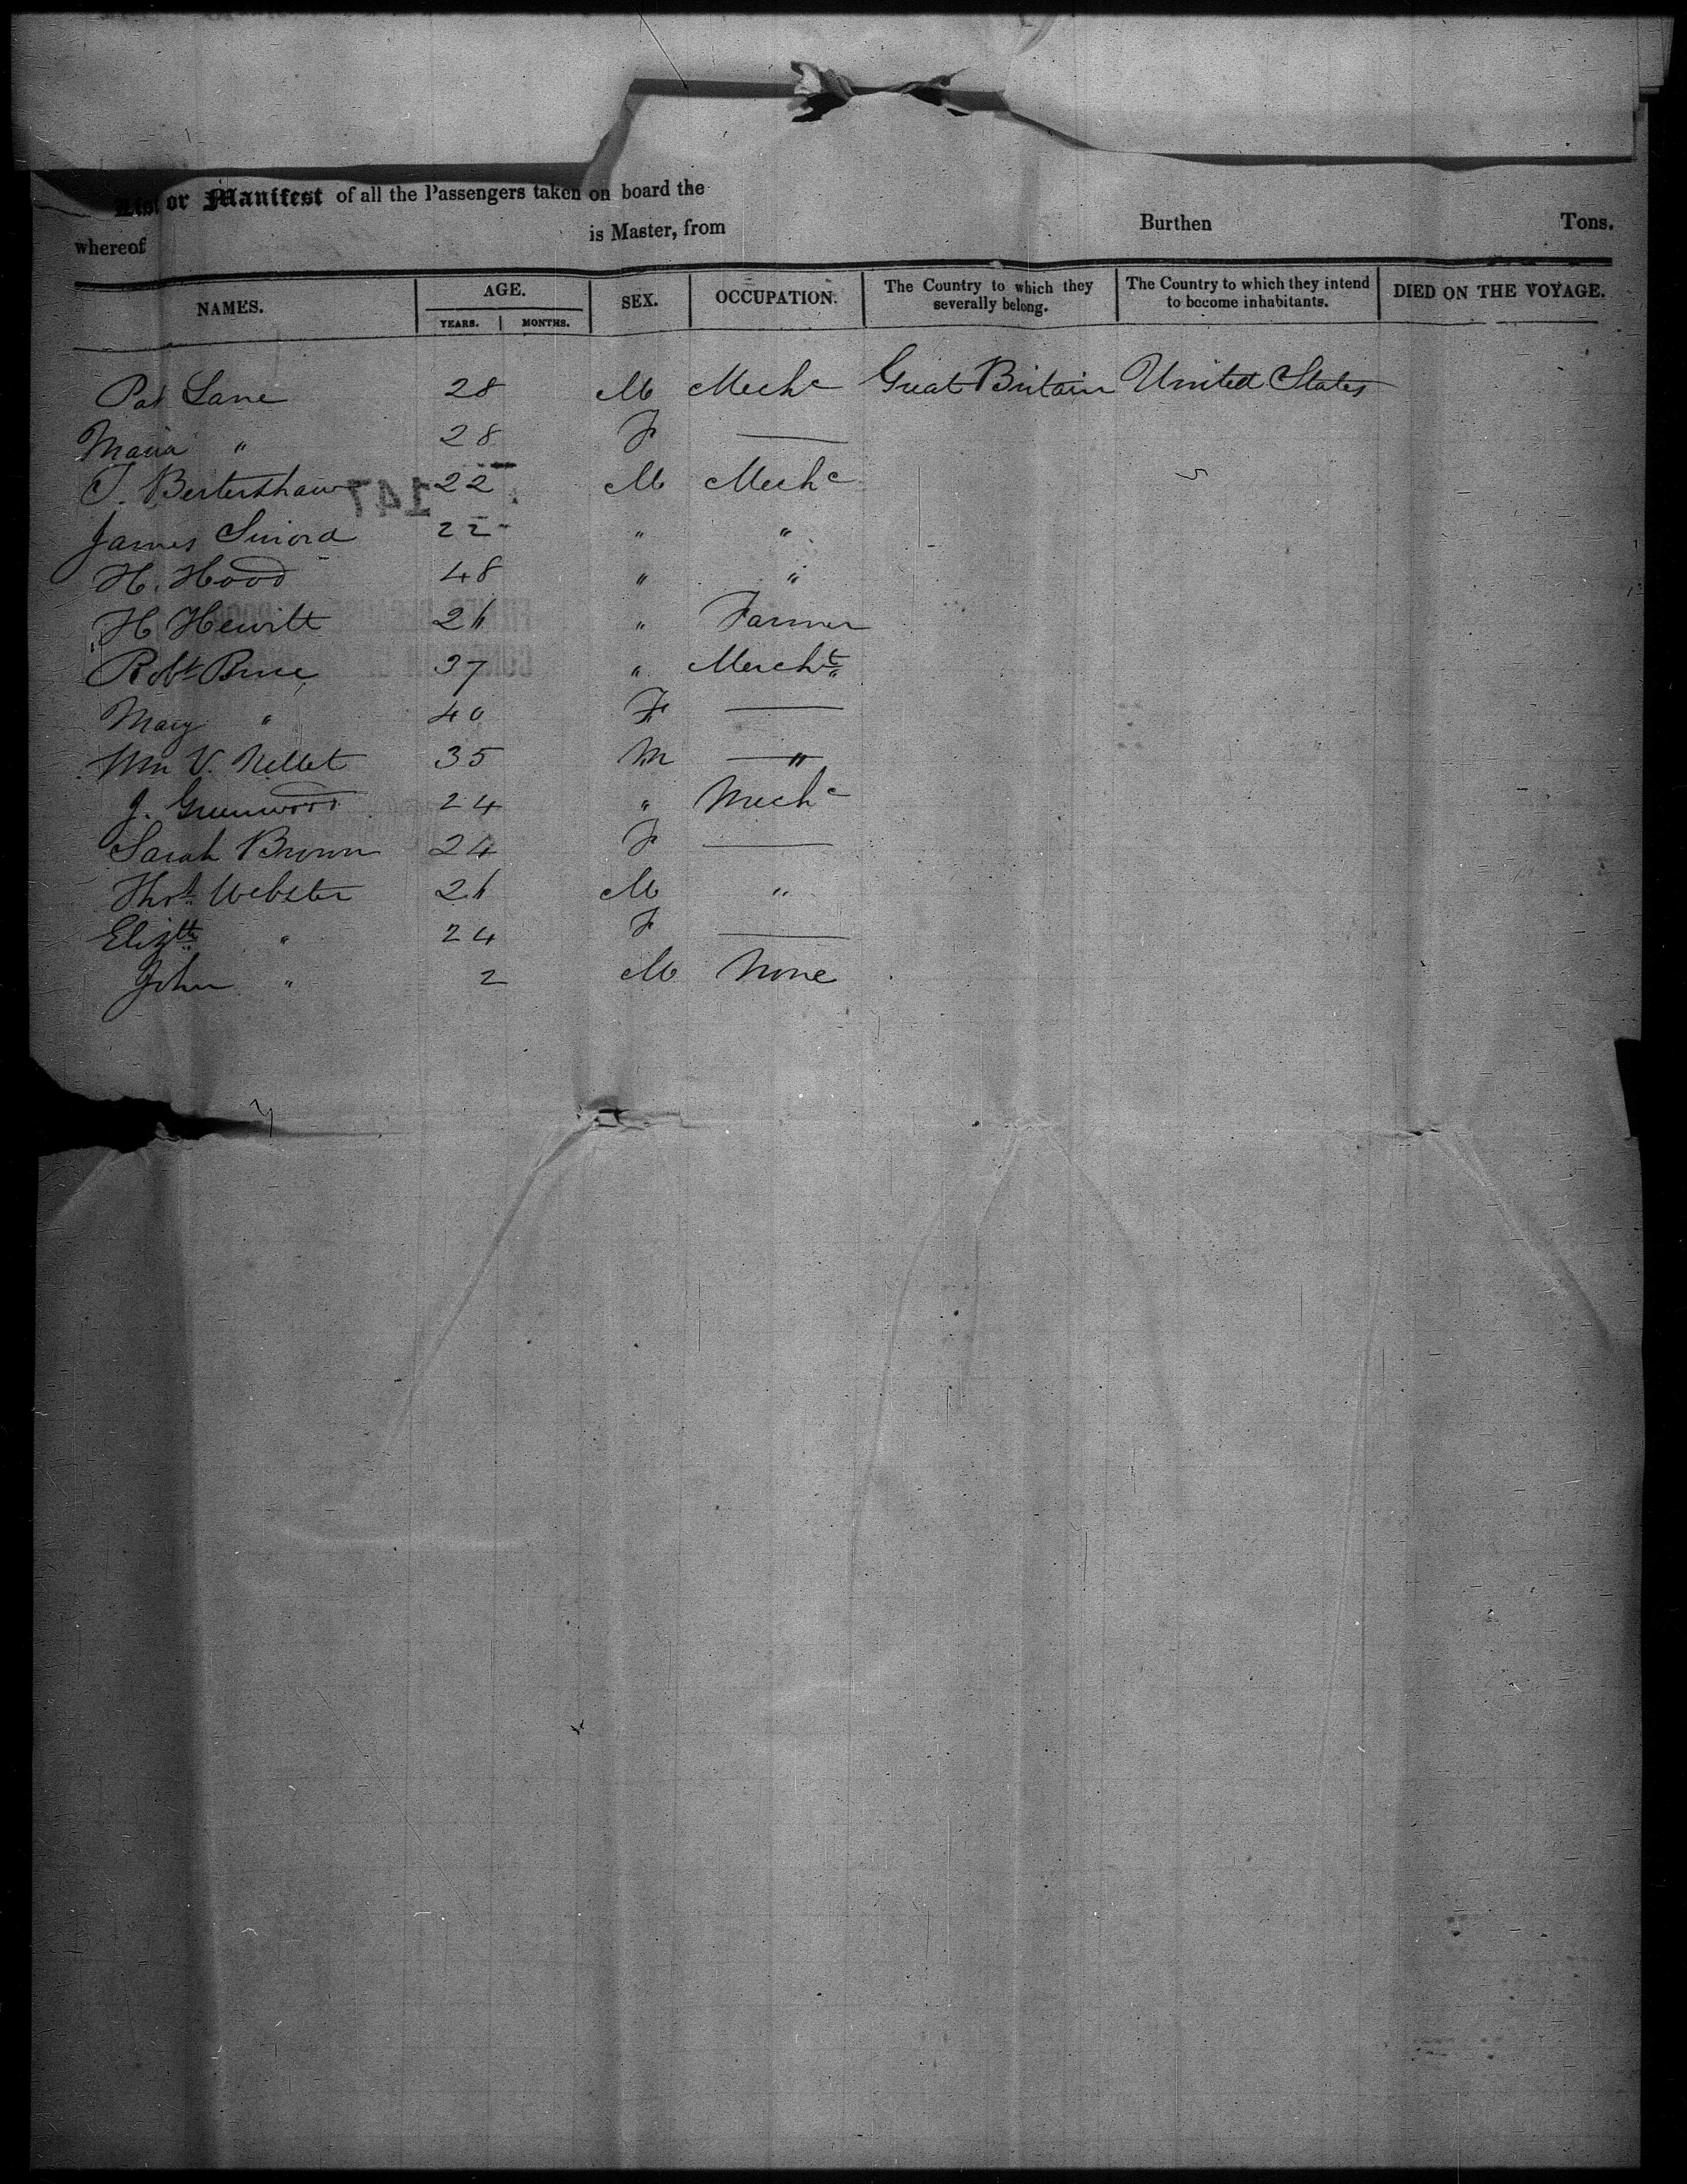 List or Manifest of all the Passengers taken on board the
whereof is Master, from Burthen Tons.
NAMES. AGE. SEX. OCCUPATION. The Country to which they severally belong. The Country to which they intend to become inhabitants. DIED ON THE VOYAGE.
YEARS. MONTHS.
Pat Lane 28 M Mechc Great Britain United States
Maria " 28 F —
T. Bertershaw 22 M Mechc
147
James 22 " "
H. Hood 48 " "
H Hewitt 26 " Farmer
Robt Bruce 37 " Mercht
Mary " 40 F —
Wm V. Nellet 35 M "
J. Greenwood 24 " Mechc
Sarah Brown 24 F —
Thos Webster 26 M "
Elizth " 24 F —
John " 2 M None